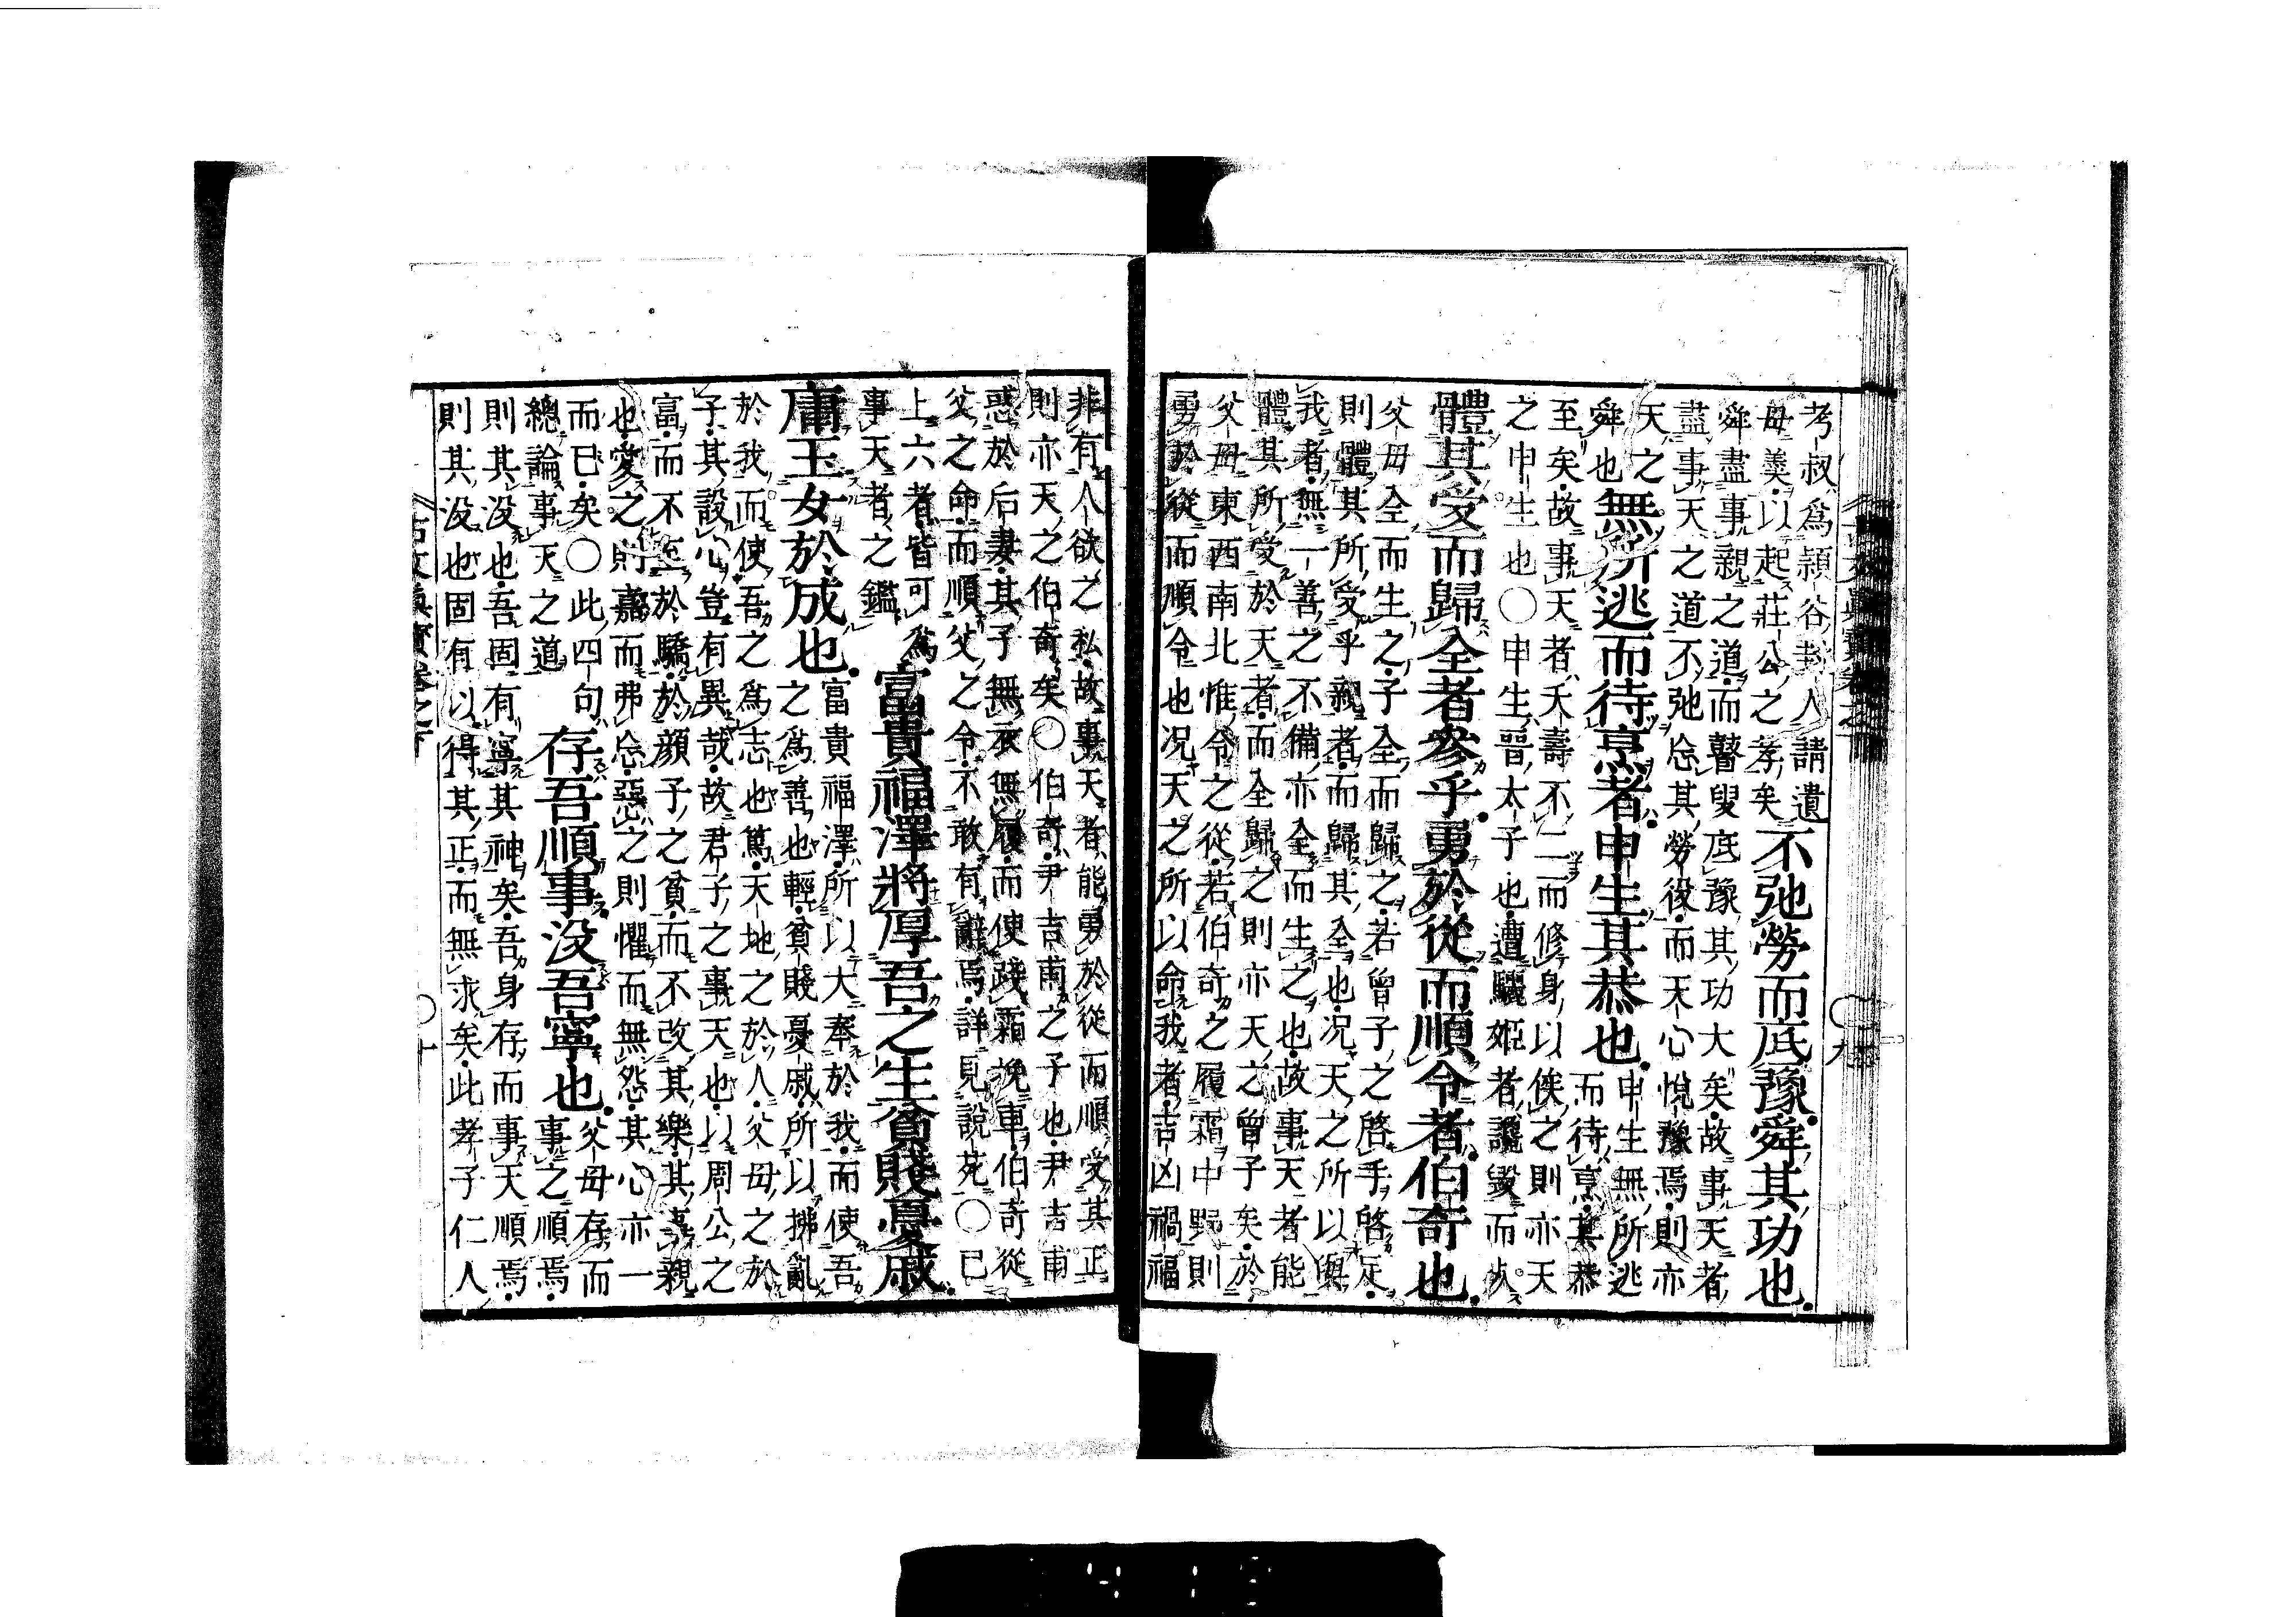 古文眞寶卷之下 ○九
考叔爲潁谷封人請遺
母羹以起莊公之孝矣
不弛勞而底豫舜其功也
舜盡事親之道而瞽叟底豫其功大矣故事天者
盡事天之道不弛忩其勞役而天心悅豫焉則亦
天之
舜也
無所逃而待烹者申生其恭也
申生無所逃
而待烹其恭
至矣故事天者夭壽不二而修身以俟之則亦天
之申生也○申生晋太子也遭驪姬者讒毀而
體其受而歸全者參乎勇於從而順令者伯奇也
父母全而生之子全而歸之若曾子之啓手啓足
則體其所受乎親者而歸其全也况天之所以與
我者無一善之不備亦全而生之也故事天者能
體其所受於天者而全歸之則亦天之曾子矣於
父母東西南北惟令之從若伯奇之履霜中野則
勇於從而順令也况天之所以命我者吉凶禍福
非有人欲之私故事天者能勇於從而順受其正
則亦天之伯奇矣○伯奇尹吉甫之子也尹吉甫
惑於后妻其子無衣無履而使踐霜挽車伯奇從
父之命而順父之令不敢有辭焉詳見說苑○已
上六者皆可爲
事天者之鑑
富貴福澤將厚吾之生貧賤憂戚
庸玉女於成也
富貴福澤所以大奉於我而使吾
之爲善也輕貧賤憂戚所以拂亂
於我而使吾之爲志也篤天地之於人父母之於
子其設心豈有異哉故君子之事天也以周公之
富而不至於驕於顔子之貧而不改其樂其事親
也愛之則嘉而弗忩惡之則懼而無怨其心亦一
而已矣○此四句
總論事天之道
存吾順事没吾寧也
父母存而
事之順焉
則其没也吾固有寧其神矣吾身存而事天順焉
則其没也固有以得其正而無求矣此孝子仁人
古文眞寶卷之下 ○十